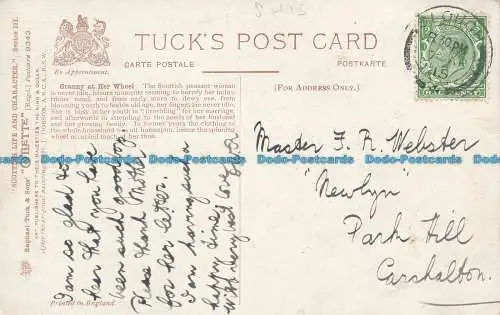 TUCK'S POST CARD
CARTE POSTALE
POSTKARTE
By Appointment.
(FOR ADDRESS ONLY.)
Granny at Her Wheel The Scottish peasant woman
is never idle, leisure moments seeming to horrify her indus-
trious mind, and from early morn to dewy eve, from
blooming youth to feeble old age, her fingers are never idle,
for she is kept in her youth in "breidling" for her marriage
and afterwards in attending to the needs of her husband
and growing family. In former years the clothing of
the whole household was all homespun, hence the spinning
wheel occupied much of her time.
I am so glad to
hear that you have
been such good boy.
Please thank Mother
for her letter.
I am having such a
happy time.
With very best love
Master F. R. Webster
"Newlyn"
Park Hill
Carshalton.
"SCOTTISH LIFE AND CHARACTER." Series III.
Raphael Tuck & Sons' "OILETTE" [Regd.] Postcard 9343.
ART PUBLISHERS TO THEIR MAJESTIES THE KING & QUEEN.
Printed in England.
Dodo-Postcards Dodo-Postcards Dodo-Postcards Dodo-Postcards Dodo-Postcards Dodo-Postcards